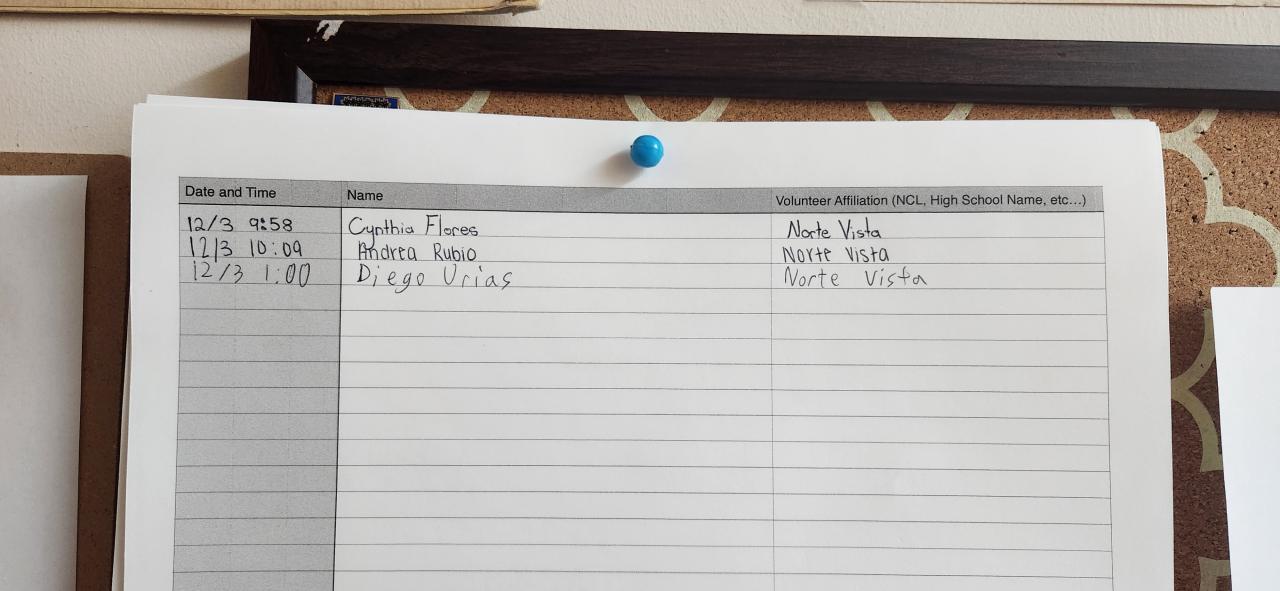 Date and Time Name Volunteer Affiliation (NCL, High School Name, etc...)
12/3 9:58 Cynthia Flores Norte Vista
12/3 10:09 Andrea Rubio Norte Vista
12/3 1:00 Diego Urias Norte Vista